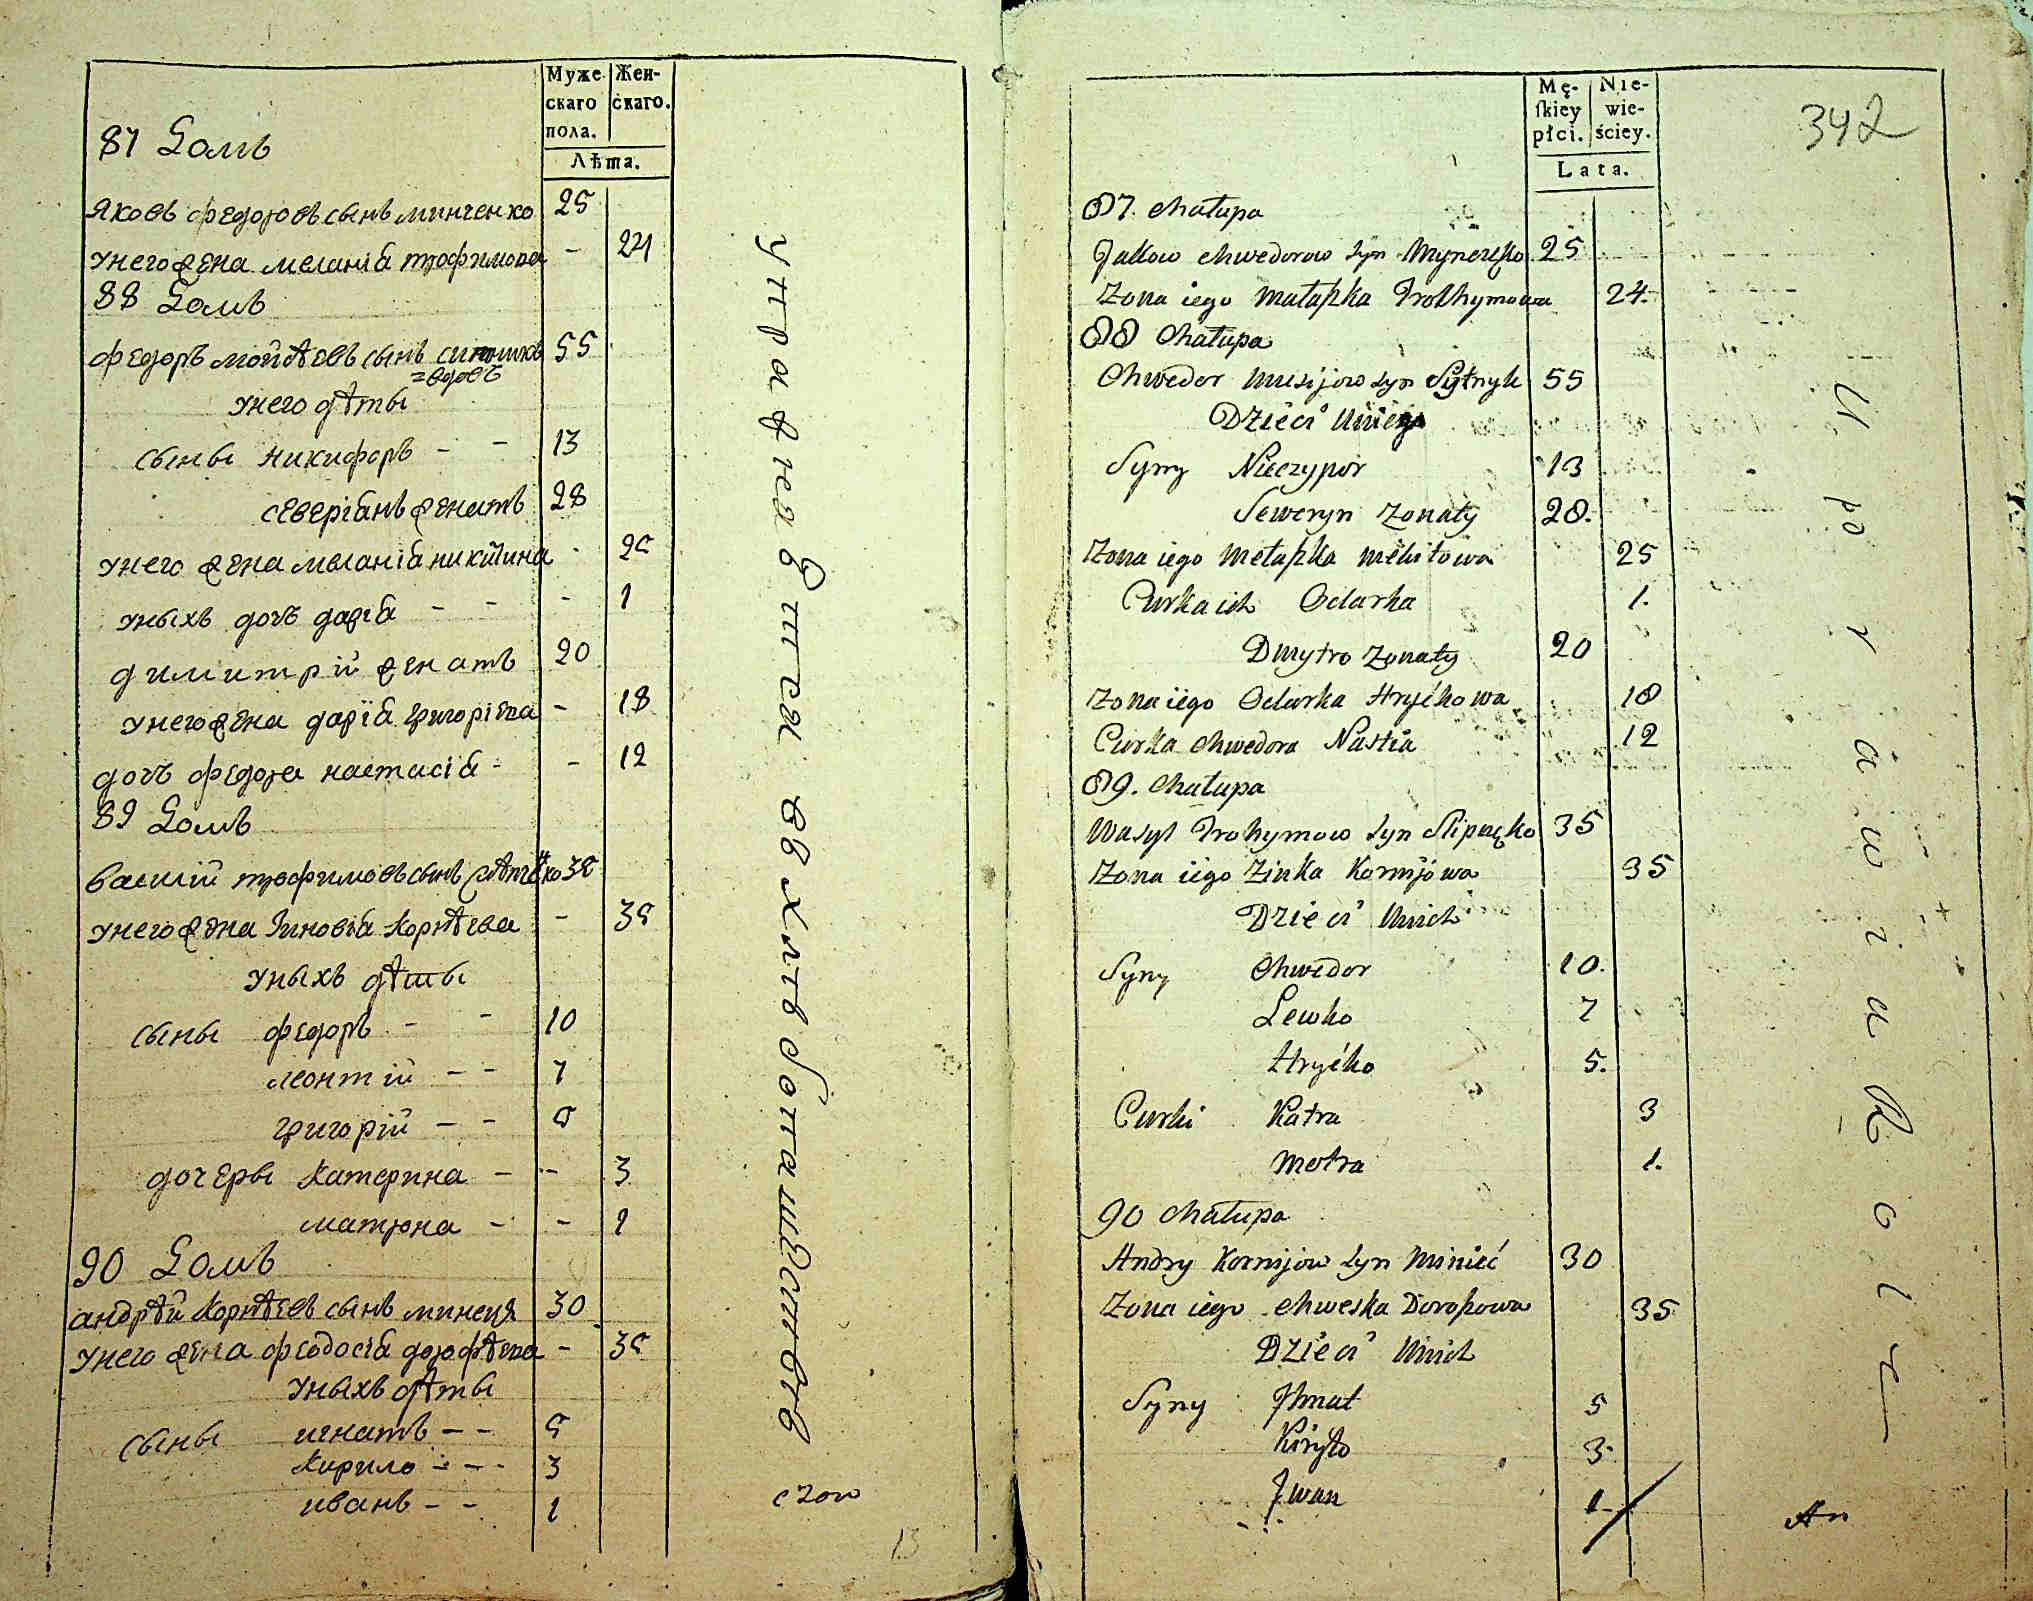 Муже
скаго
пола.
Жен-
скаго.
Лѣта.
87 Домъ
Яковъ федоровъ сынъ минченко 25
унего жена меланіа трофимова - 24
88 Домъ
федоръ мойсѣевъ сынъ 55
=вдовъ
унего дѣты
сыны никифоръ - - 13
северіанъ женатъ 28
унего жена меланіа никитина - 25
уныхъ дочъ даріа - - - 1
димитрій женатъ 20
унего жена даріа григоріева - 18
дочъ федора настасіа - - 12
89 Домъ
василій трофимовъ сынъ 35
унего жена Зиновіа Корнѣева - 35
уныхъ дѣты
сыны федоръ - - 10
леонтій - - 7
григорій - - 5
дочеры Катерина - - 3
матрона - - 1
90 Домъ
андрѣй Корнѣевъ сынъ минецъ 30
унего жена феодосіа дорофѣева - 35
уныхъ дѣты
сыны игнатъ - - 5
Кирило - - - 3
иванъ - - 1
управляется въ хлѣбопашествѣ
czow
13
Mę-
skiey
płci.
Nie-
wie-
ściey.
Lata.
342
87. Chałupa
Jakow Chwedorow syn 25
Zona iego Małaszka Trokhymowa 24.
88 Chałupa
Chwedor Musijow syn Sytnyk 55
Dzieci Uniego
Syny Nieczypor 13
Seweryn Zonaty 28.
Zona iego Mełaszka Mekitowa 25
Curka ich Odarka 1.
Dmytro Zonaty 20
Zona iego Odarka Hryćkowa 18
Curka Chwedora Nastia 12
89. Chałupa
Wasyl Trohymow syn 35
Zona iego Zinka Kornijowa 35
Dzieci Unich
Syny Chwedor 10.
Lewko 7
Hryćko 5.
Curki Katra 3
Motra 1.
90 Chałupa
Andry Kornijow syn Minieć 30
Zona iego Chweska Doroszowa 35
Dzieci Unich
Syny Jhnat 5
Kiryło 3.
Jwan 1.
Uprawia Rolę
An